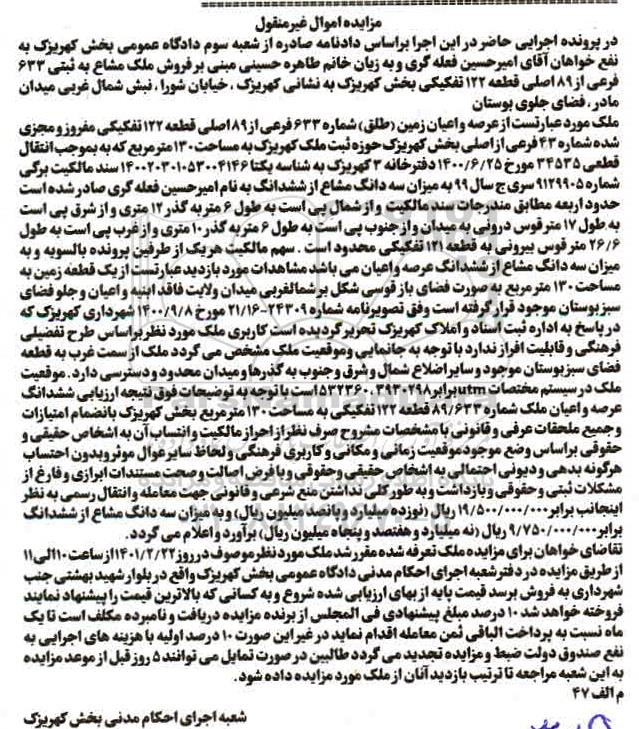 مزایده اموال غیرمنقول
در پرونده اجرایی حاضر در این اجرا براساس دادنامه صادره از شعبه سوم دادگاه عمومی بخش کهریزک به
نفع خواهان آقای امیرحسین فعله گری و به زیان خانم طاهره حسینی مبنی بر فروش ملک مشاع به ثبتی ۶۳۳
فرعی از ۸۹ اصلی قطعه ۱۲۲ تفکیکی بخش کهریزک به نشانی کهریزک ، خیابان شورا ، نبش شمال غربی میدان
مادر ، فضای جلوی بوستان
ملک مورد عبارتست از عرصه و اعیان زمین (طلق) شماره ۶۳۳ فرعی از ۸۹ اصلی قطعه ۱۲۲ تفکیکی مفروز و مجزی
شده شماره ۴۳ فرعی از اصلی بخش کهریزک حوزه ثبت ملک کهریزک به مساحت ۱۳۰ متر مربع که به بموجب انتقال
قطعی ۳۴۵۳۵ مورخ ۱۴۰۰/۶/۲۵ دفترخانه ۳ کهریزک به شناسه یکتا ۱۴۰۰۲۰۳۰۱۰۵۳۰۰۴۱۴۶ سند مالکیت برگی
شماره ۹۱۲۹۹۰۵ سری ج سال ۹۹ به میزان سه دانگ مشاع از ششدانگ به نام امیرحسین فعله گری صادر شده است
حدود اربعه مطابق مندرجات سند مالکیت و از شمال پی است به طول ۶ متر به گذر ۱۲ متری و از شرق پی است
به طول ۱۷ متر قوس درونی به میدان و از جنوب پی است به طول ۶ متر به گذر ۱۰ متری و از غرب پی است به طول
۲۶/۶ متر قوس بیرونی به قطعه ۱۲۱ تفکیکی محدود است . سهم مالکیت هر یک از طرفین پرونده بالسویه و به
میزان سه دانگ مشاع از ششدانگ عرصه و اعیان می باشد مشاهدات مورد بازدید عبارتست از یک قطعه زمین به
مساحت ۱۳۰ متر مربع به صورت فضای باز قوسی شکل بر شمالغربی میدان ولایت فاقد ابنیه و اعیان و جلو فضای
سبز بوستان موجود قرار گرفته است وفق تصویرنامه شماره ۲۱/۱۶-۲۴۳۰۹ مورخ ۱۴۰۰/۹/۸ شهرداری کهریزک که
در پاسخ به اداره ثبت اسناد و املاک کهریزک تحریر گردیده است کاربری ملک مورد نظر براساس طرح تفضیلی
فرهنگی و قابلیت افراز ندارد با توجه به جانمایی و موقعیت ملک مشخص می گردد ملک از سمت غرب به قطعه
فضای سبز بوستان موجود و سایر اضلاع شمال و شرق و جنوب به گذرها و میدان محدود و دسترسی دارد . موقعیت
ملک در سیستم مختصات utm برابر ۳۹۳۰۲۹۸، ۵۳۲۳۶۰ است با توجه به توضیحات فوق نتیجه ارزیابی ششدانگ
عرصه و اعیان ملک شماره ۸۹/۶۳۳ قطعه ۱۲۲ تفکیکی به مساحت ۱۳۰ متر مربع بخش کهریزک بانضمام امتیازات
و جمیع ملحقات عرفی و قانونی با مشخصات مشروح صرف نظر از احراز مالکیت و انتساب آن به اشخاص حقیقی و
حقوقی براساس وضع موجود موقعیت زمانی و مکانی و کاربری فرهنگی و لحاظ سایر عوال موثر و بدون احتساب
هرگونه بدهی و دیونی احتمالی به اشخاص حقیقی و حقوقی و با فرض اصالت و صحت مستندات ابرازی و فارغ از
مشکلات ثبتی و حقوقی و بازداشت و به طور کلی نداشتن منع شرعی و قانونی جهت معامله و انتقال رسمی به نظر
اینجانب برابر ۱۹/۵۰۰/۰۰۰/۰۰۰ ریال (نوزده میلیارد و پانصد میلیون ریال) و به میزان سه دانگ مشاع از ششدانگ
برابر ۹/۷۵۰/۰۰۰/۰۰۰ ریال (نه میلیارد و هفتصد و پنجاه میلیون ریال) برآورد و اعلام می گردد.
تقاضای خواهان برای مزایده ملک تعرفه شده مقرر شد ملک مورد نظر موصوف در روز ۱۴۰۱/۲/۲۲ از ساعت ۱۰ الی ۱۱
از طریق مزایده در دفتر شعبه اجرای احکام مدنی دادگاه عمومی بخش کهریزک واقع در بلوار شهید بهشتی جنب
شهرداری به فروش برسد قیمت پایه از بهای ارزیابی شده شروع و به کسانی که بالاترین قیمت را پیشنهاد نمایند
فروخته خواهد شد ۱۰ درصد مبلغ پیشنهادی فی المجلس از برنده مزایده دریافت و نامبرده مکلف است تا یک
ماه نسبت به پرداخت الباقی ثمن معامله اقدام نماید در غیر این صورت ۱۰ درصد اولیه با هزینه های اجرایی به
نفع صندوق دولت ضبط و مزایده تجدید می گردد طالبین در صورت تمایل می توانند ۵ روز قبل از موعد مزایده
به این شعبه مراجعه تا ترتیب بازدید آنان از ملک مورد مزایده داده شود.
م الف ۴۷
شعبه اجرای احکام مدنی بخش کهریزک